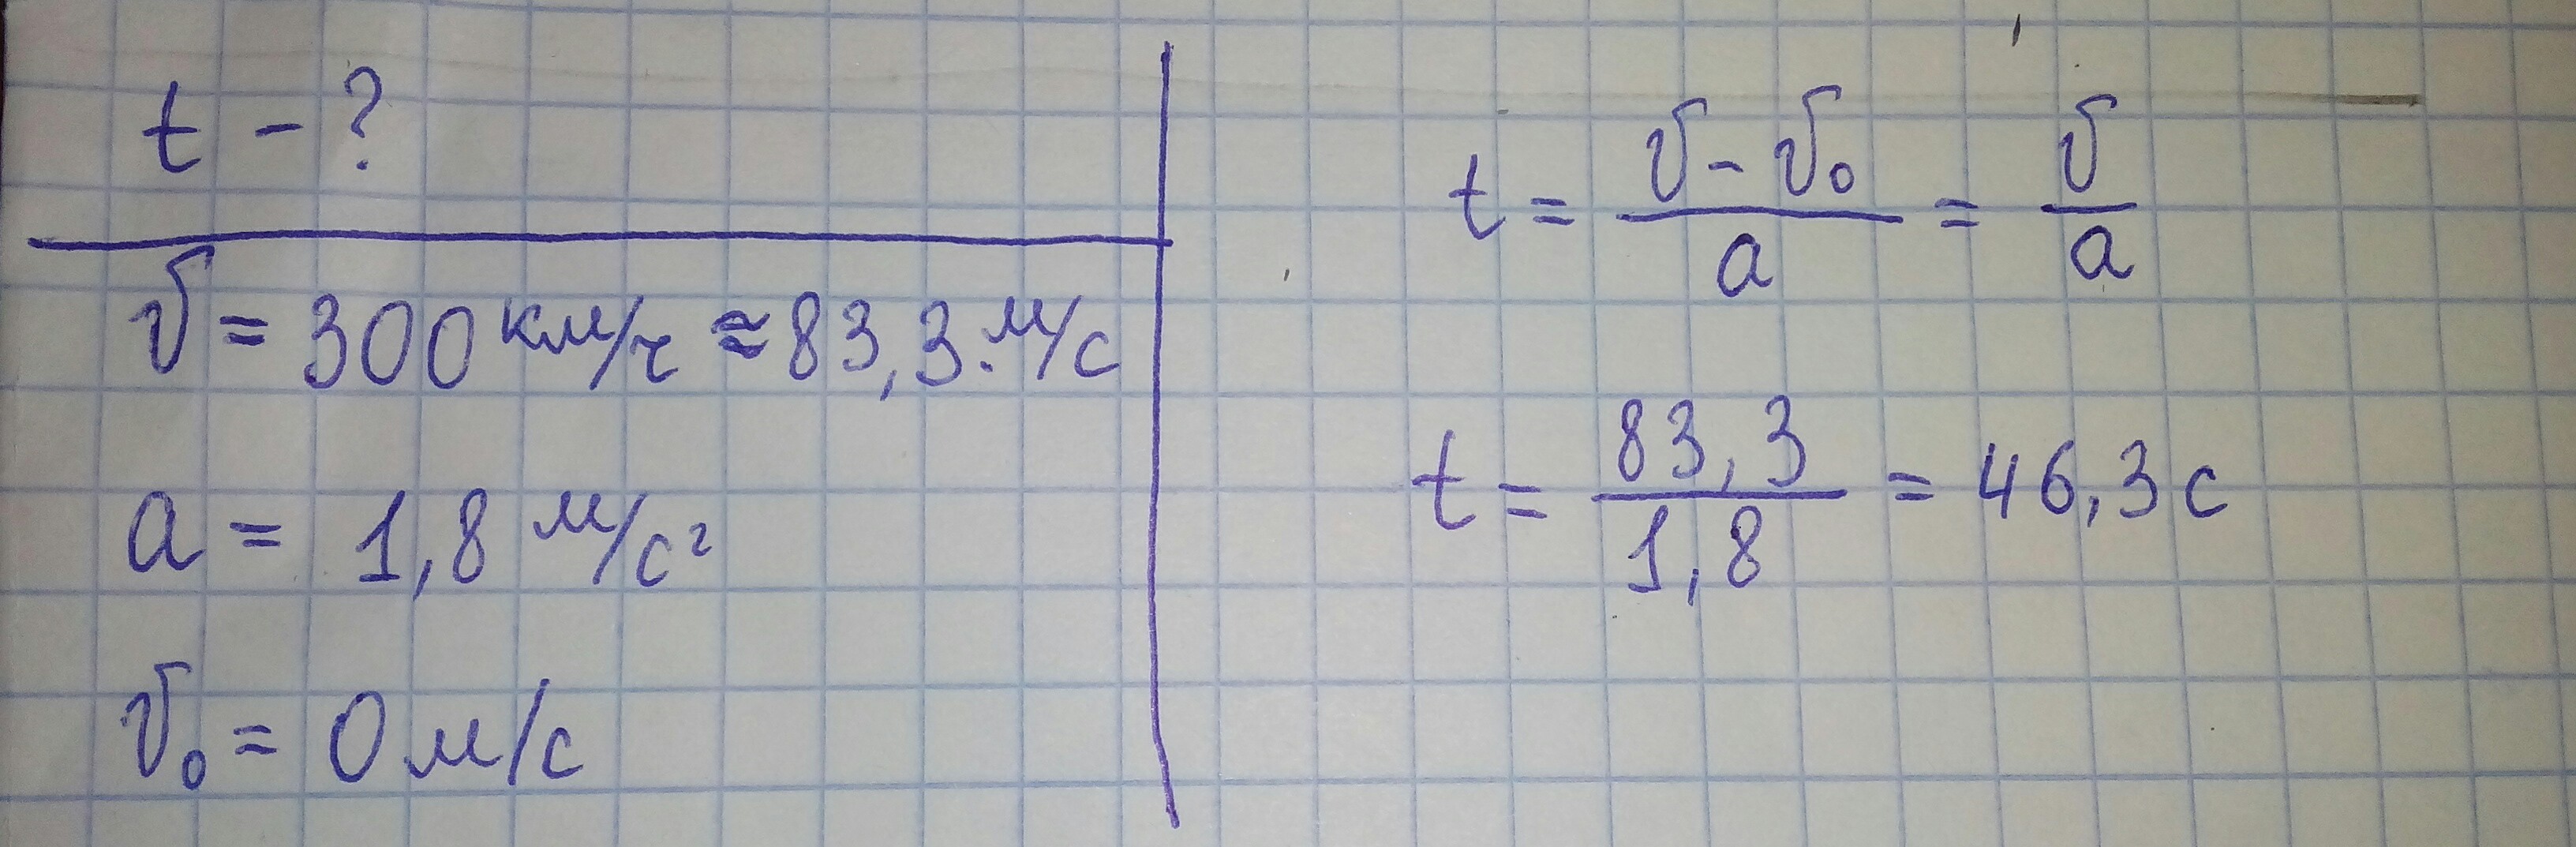 t - ?
υ = 300 км/ч ≈ 83,3 м/с
a = 1,8 м/с²
υ₀ = 0 м/с
t = (υ - υ₀)/a = υ/a
t = 83,3/1,8 = 46,3 с